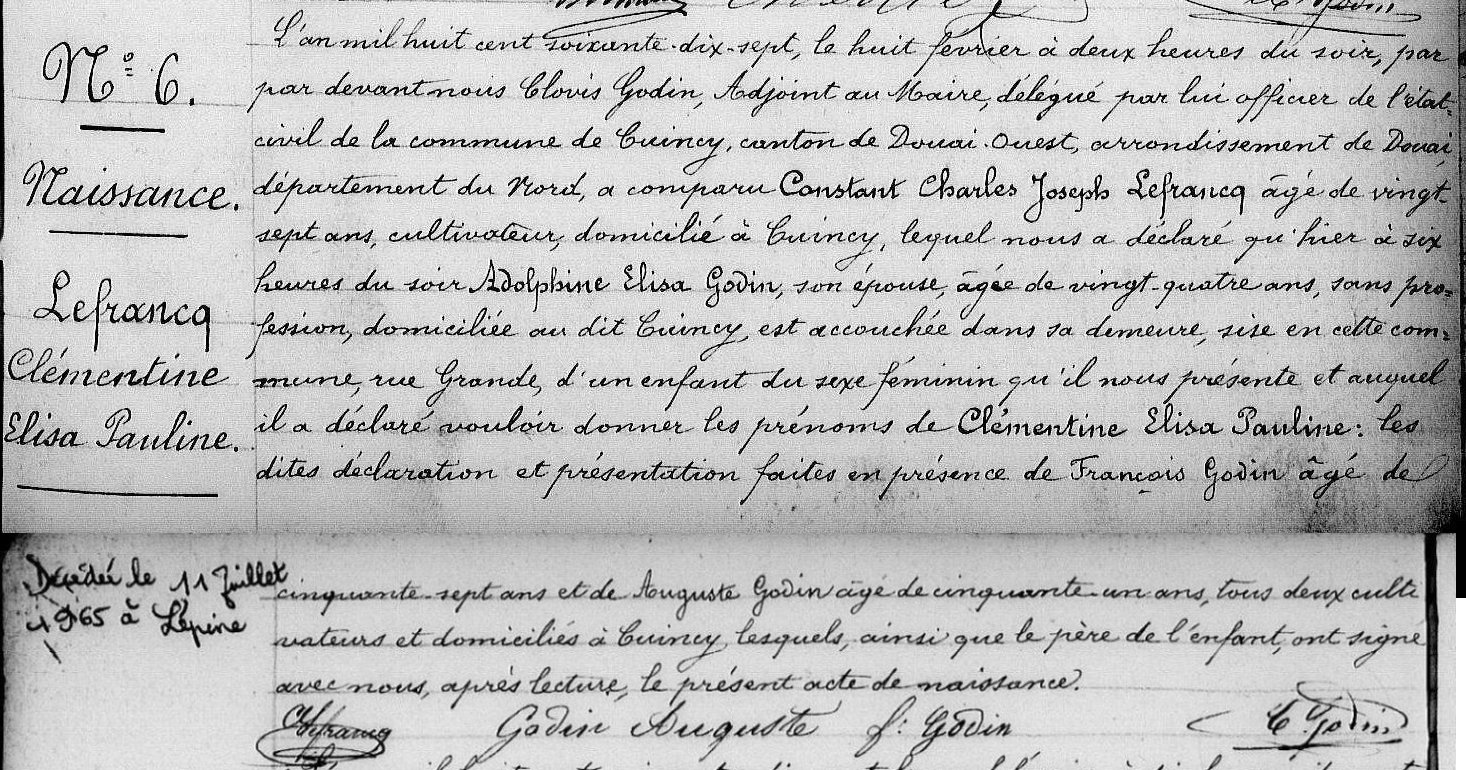 N° 6.
Naissance.
Lefrancq
Clémentine
Elisa Pauline.
L'an mil huit cent soixante-dix-sept, le huit février à deux heures du soir, par
par devant nous Clovis Godin, Adjoint au Maire, délégué par lui officier de l'état-
civil de la commune de Cuincy, canton de Douai-Ouest, arrondissement de Douai,
département du Nord, a comparu Constant Charles Joseph Lefrancq âgé de vingt-
sept ans, cultivateur, domicilié à Cuincy, lequel nous a déclaré qu'hier à six
heures du soir Adolphine Elisa Godin, son épouse, âgée de vingt-quatre ans, sans pro=
fession, domiciliée au dit Cuincy, est accouchée dans sa demeure, sise en cette com=
mune, rue Grande, d'un enfant du sexe féminin qu'il nous présente et auquel
il a déclaré vouloir donner les prénoms de Clémentine Elisa Pauline: les
dites déclaration et présentation faites en présence de François Godin âgé de
Décédée le 11 Juillet
1965 à Lépine
cinquante-sept ans et de Auguste Godin âgé de cinquante-un ans, tous deux culti
vateurs et domiciliés à Cuincy lesquels, ainsi que le père de l'enfant, ont signé
avec nous, après lecture, le présent acte de naissance.
Lefrancq Godin Auguste f: Godin C. Godin